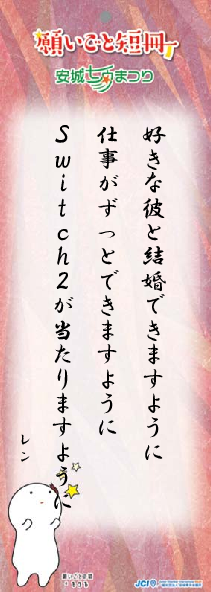 願いごと短冊
安城七夕まつり
好きな彼と結婚できますように
仕事がずっとできますように
Switch2が当たりますように
レン
願いごとの国
JCI